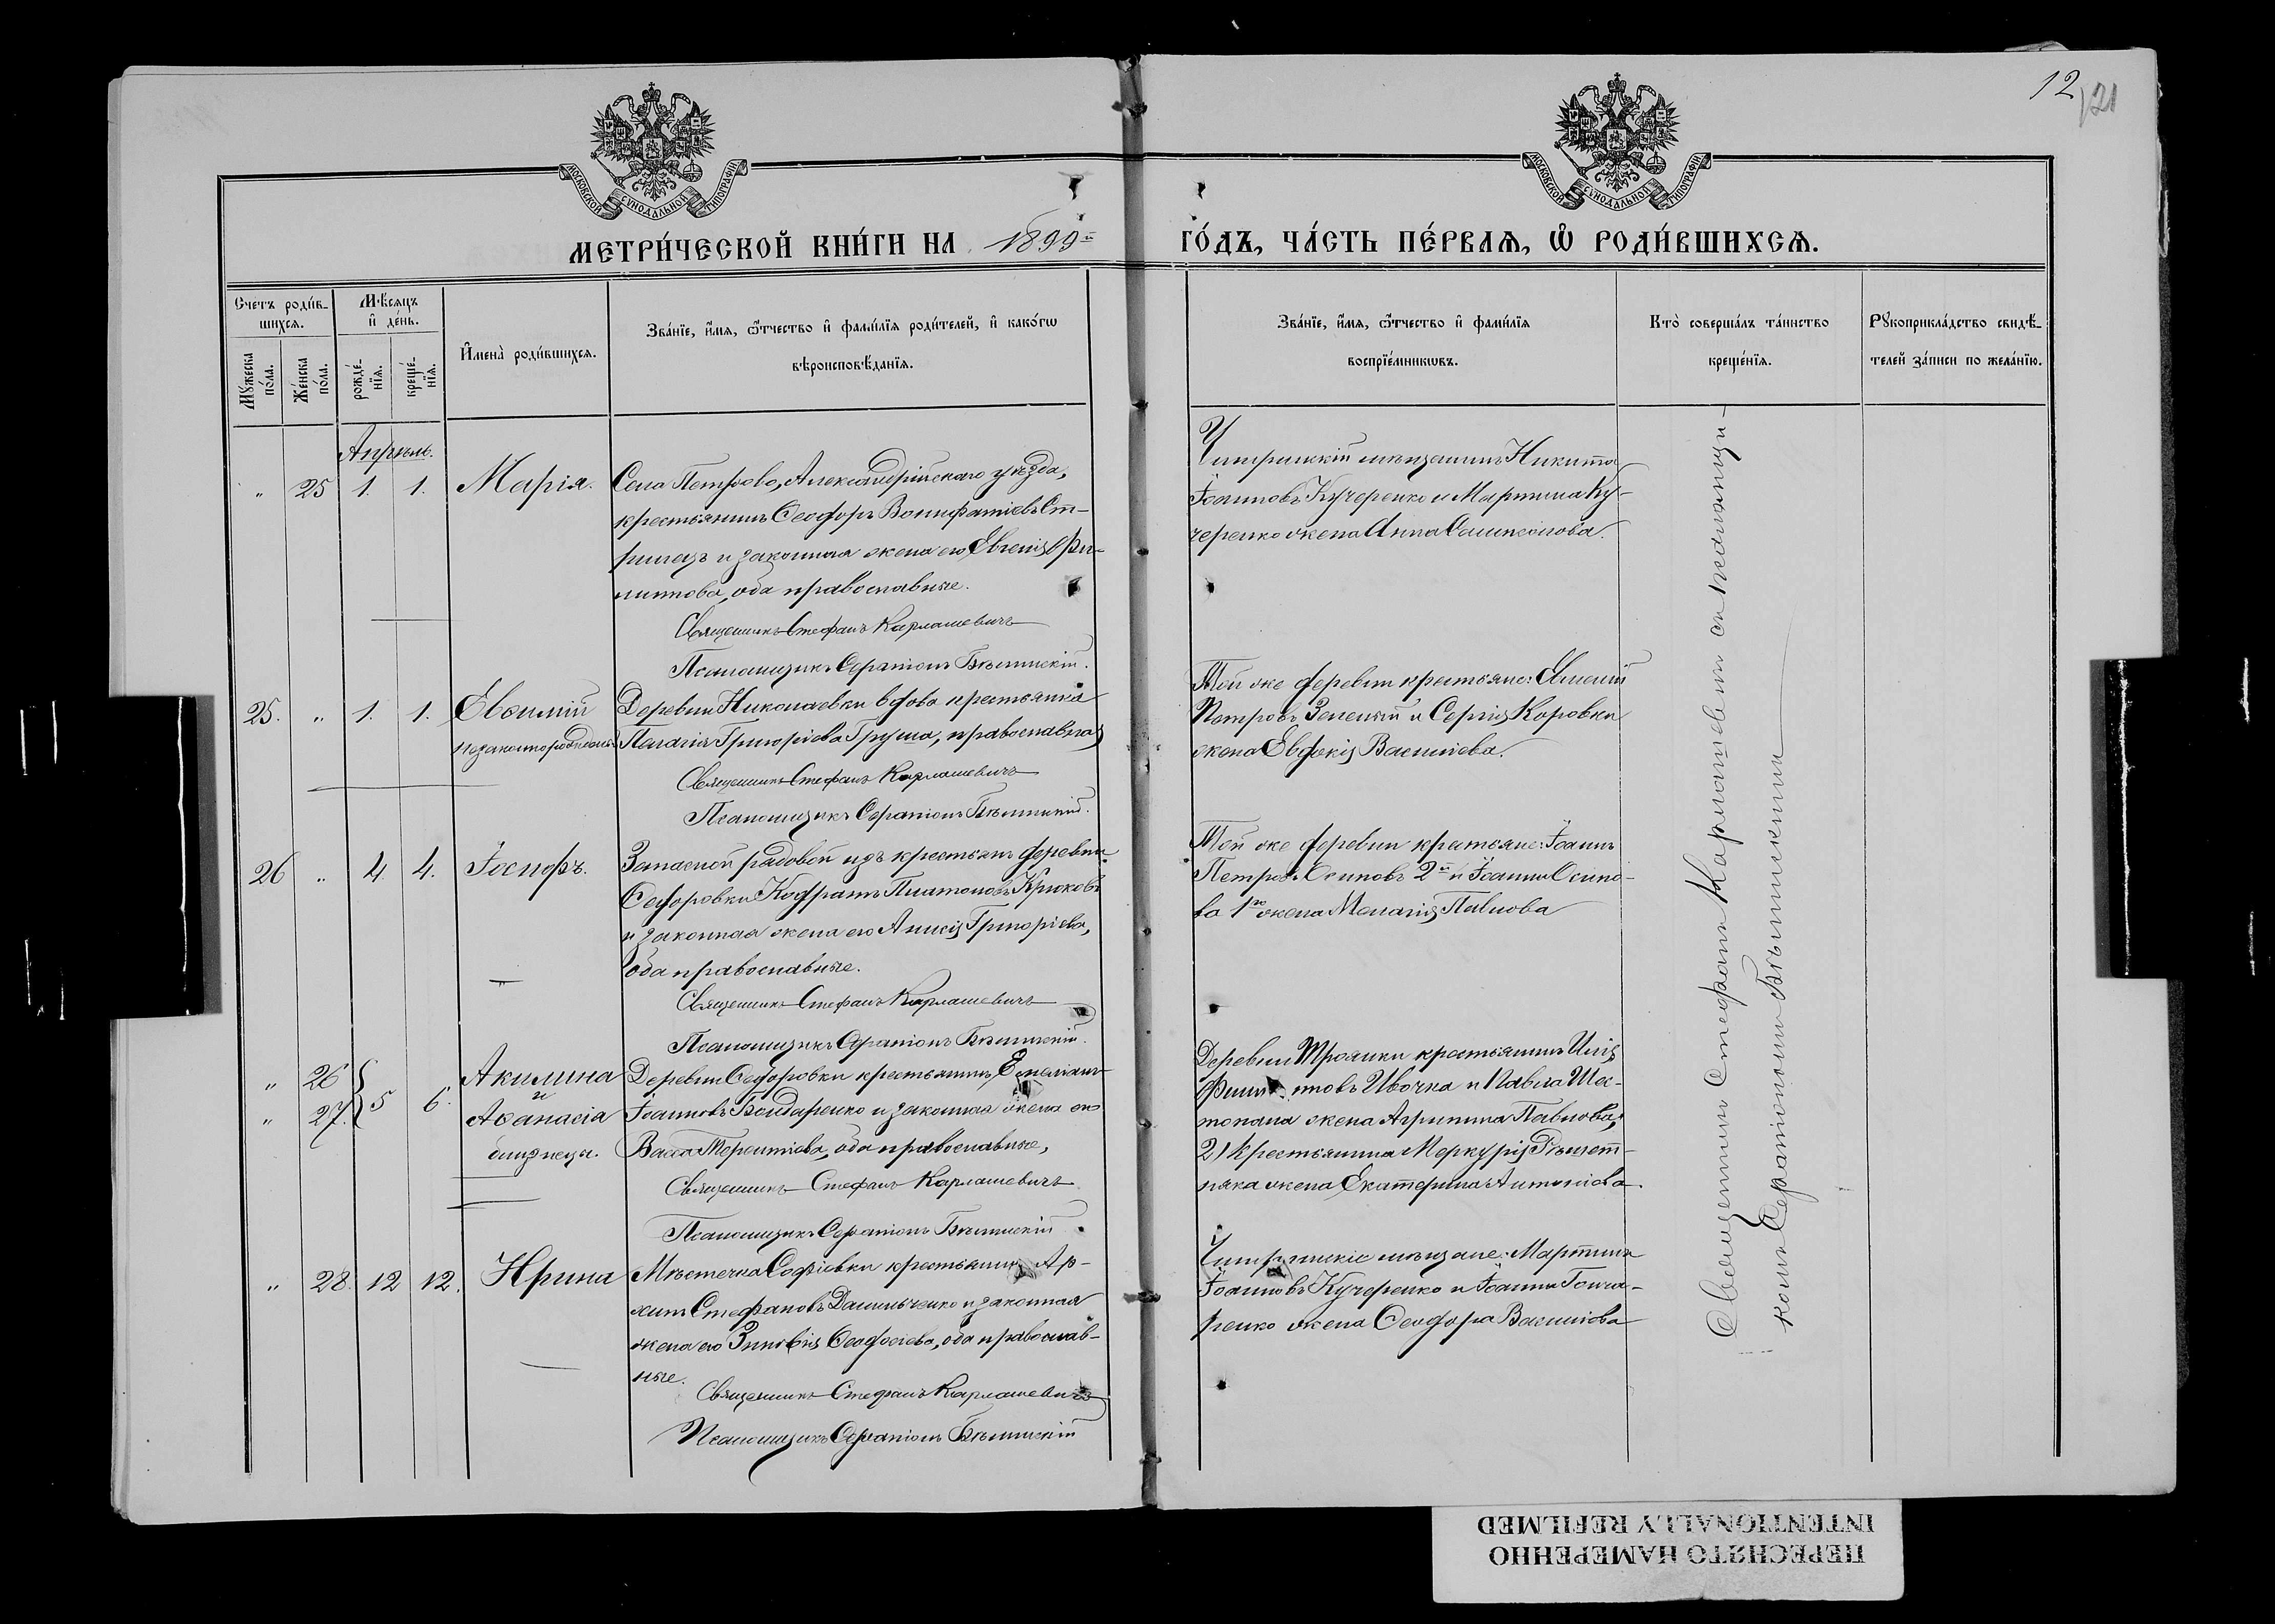 12
121
МОСКОВСКОЙ СѴНОДАЛЬНОЙ ТИПОГРАФІИ
МОСКОВСКОЙ СѴНОДАЛЬНОЙ ТИПОГРАФІИ
МЕТРИ́ЧЕСКОЙ КНИ́ГИ НА 1899й ГО́ДЪ, ЧА́СТЬ ПЕ́РВАѦ, Ѡ҆ РОДИ́ВШИХСѦ.
Счетъ роди́в-
шихсѧ.
Мѣсѧцъ
и҆ де́нь.
Мꙋ́жеска
по́ла.
Же́нска
по́ла.
рожде́-
нїѧ.
креще́-
нїѧ.
И҆мена̀ роди́вшихсѧ.
Зва́нїе, и҆́мѧ, ѻ҆́тчество и҆ фами́лїѧ роди́телей, и҆ како́гѡ
вѣроисповѣ́данїѧ.
Зва́нїе, и҆́мѧ, ѻ҆́тчество и҆ фами́лїѧ
воспрїе́мникѡвъ.
Кто̀ соверша́лъ та́инство
креще́нїѧ.
Рꙋкоприкла́дство свидѣ́-
телей за́писи по жела́нїю.
Апрѣль.
" 25 1. 1. Марія.
Села Петрово, Александрійскаго уѣзда,
крестьянинъ Ѳеодоръ Вонифатіевъ Ст-
рилецъ и законная жена его Евгенія Фи-
липпова, оба православные.
Священникъ Стефанъ Карлашевичъ
Псаломщикъ Серапіонъ Бѣлинскій.
Чигринскій мѣщанинъ Никита
Іоанновъ Кучеренко и Мартина Ку-
черенко жена Анна Сампсонова.
25. " 1. 1. Евѳимій
незаконнорожден.
Деревни Николаевки вдова крестьянка
Пелагія Григоріева Груша, православная
Священникъ Стефанъ Карлашевичъ
Псаломщикъ Серапіонъ Бѣлинскій.
Той же деревни крестьяне: Евменій
Петровъ Зеленый и Сергія Коровки
жена Евдокія Василіева.
26 " 4. 4. Іосифъ.
Запасной рядовой изъ крестьянъ деревни
Ѳедоровки Кодратъ Платоновъ Крюковъ
и законная жена его Анисія Григоріева,
оба православные.
Священникъ Стефанъ Карлашевичъ
Псаломщикъ Серапіонъ Бѣлинскій.
Той же деревни крестьяне: Іоаннъ
Петровъ Осиповъ 2й и Іоанна Осипо-
ва 1го жена Меланія Павлова
" 26
" 27. 5 6.
Акилина
и
Аѳанасіа
близнецы.
Деревни Ѳедоровки крестьянинъ Емеліанъ
Іоанновъ Бондаренко и законная жена его
Васса Терентіева, оба православные,
Священникъ Стефанъ Карлашевичъ
Псаломщикъ Серапіонъ Бѣлинскій
Деревни Трояники крестьянинъ Илія
Ивочка и Павла Шес-
топала жена Агрипина Павлова,
2) крестьянина Меркурія Рѣшет-
няка жена Екатерина Антоніева.
" 28. 12 12. Ирина
Мѣстечка Софіевки крестьянинъ Ар-
хипъ Стефановъ Данильченко и законная
жена его Зиновія Ѳеодосіева, оба православ-
ные.
Священникъ Стефанъ Карлашевичъ
Псаломщикъ Серапіонъ Бѣлинскій
Чигринскіе мѣщане: Мартинъ
Іоанновъ Кучеренко и Іоанна Гонча-
ренко жена Ѳеодора Василіева
Священникъ Стефанъ Карлашевичъ съ псаломщи-
комъ Серапіономъ Бѣлинскимъ
ПЕРЕСНЯТО НАМЕРЕННО
INTENTIONALLY REFILMED